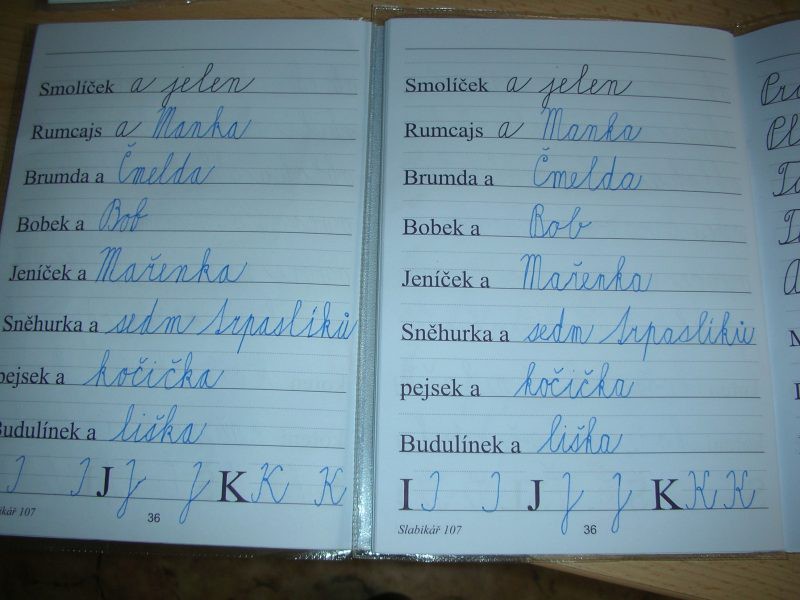 Smolíček a jelen
Rumcajs a Manka
Brumda a Čmelda
Bobek a Bob
Jeníček a Mařenka
Sněhurka a sedm trpaslíků
pejsek a kočička
Budulínek a liška
I I J J J K K K
36
Smolíček a jelen
Rumcajs a Manka
Brumda a Čmelda
Bobek a Bob
Jeníček a Mařenka
Sněhurka a sedm trpaslíků
pejsek a kočička
Budulínek a liška
I I I J J J K K K
Slabikář 107
36